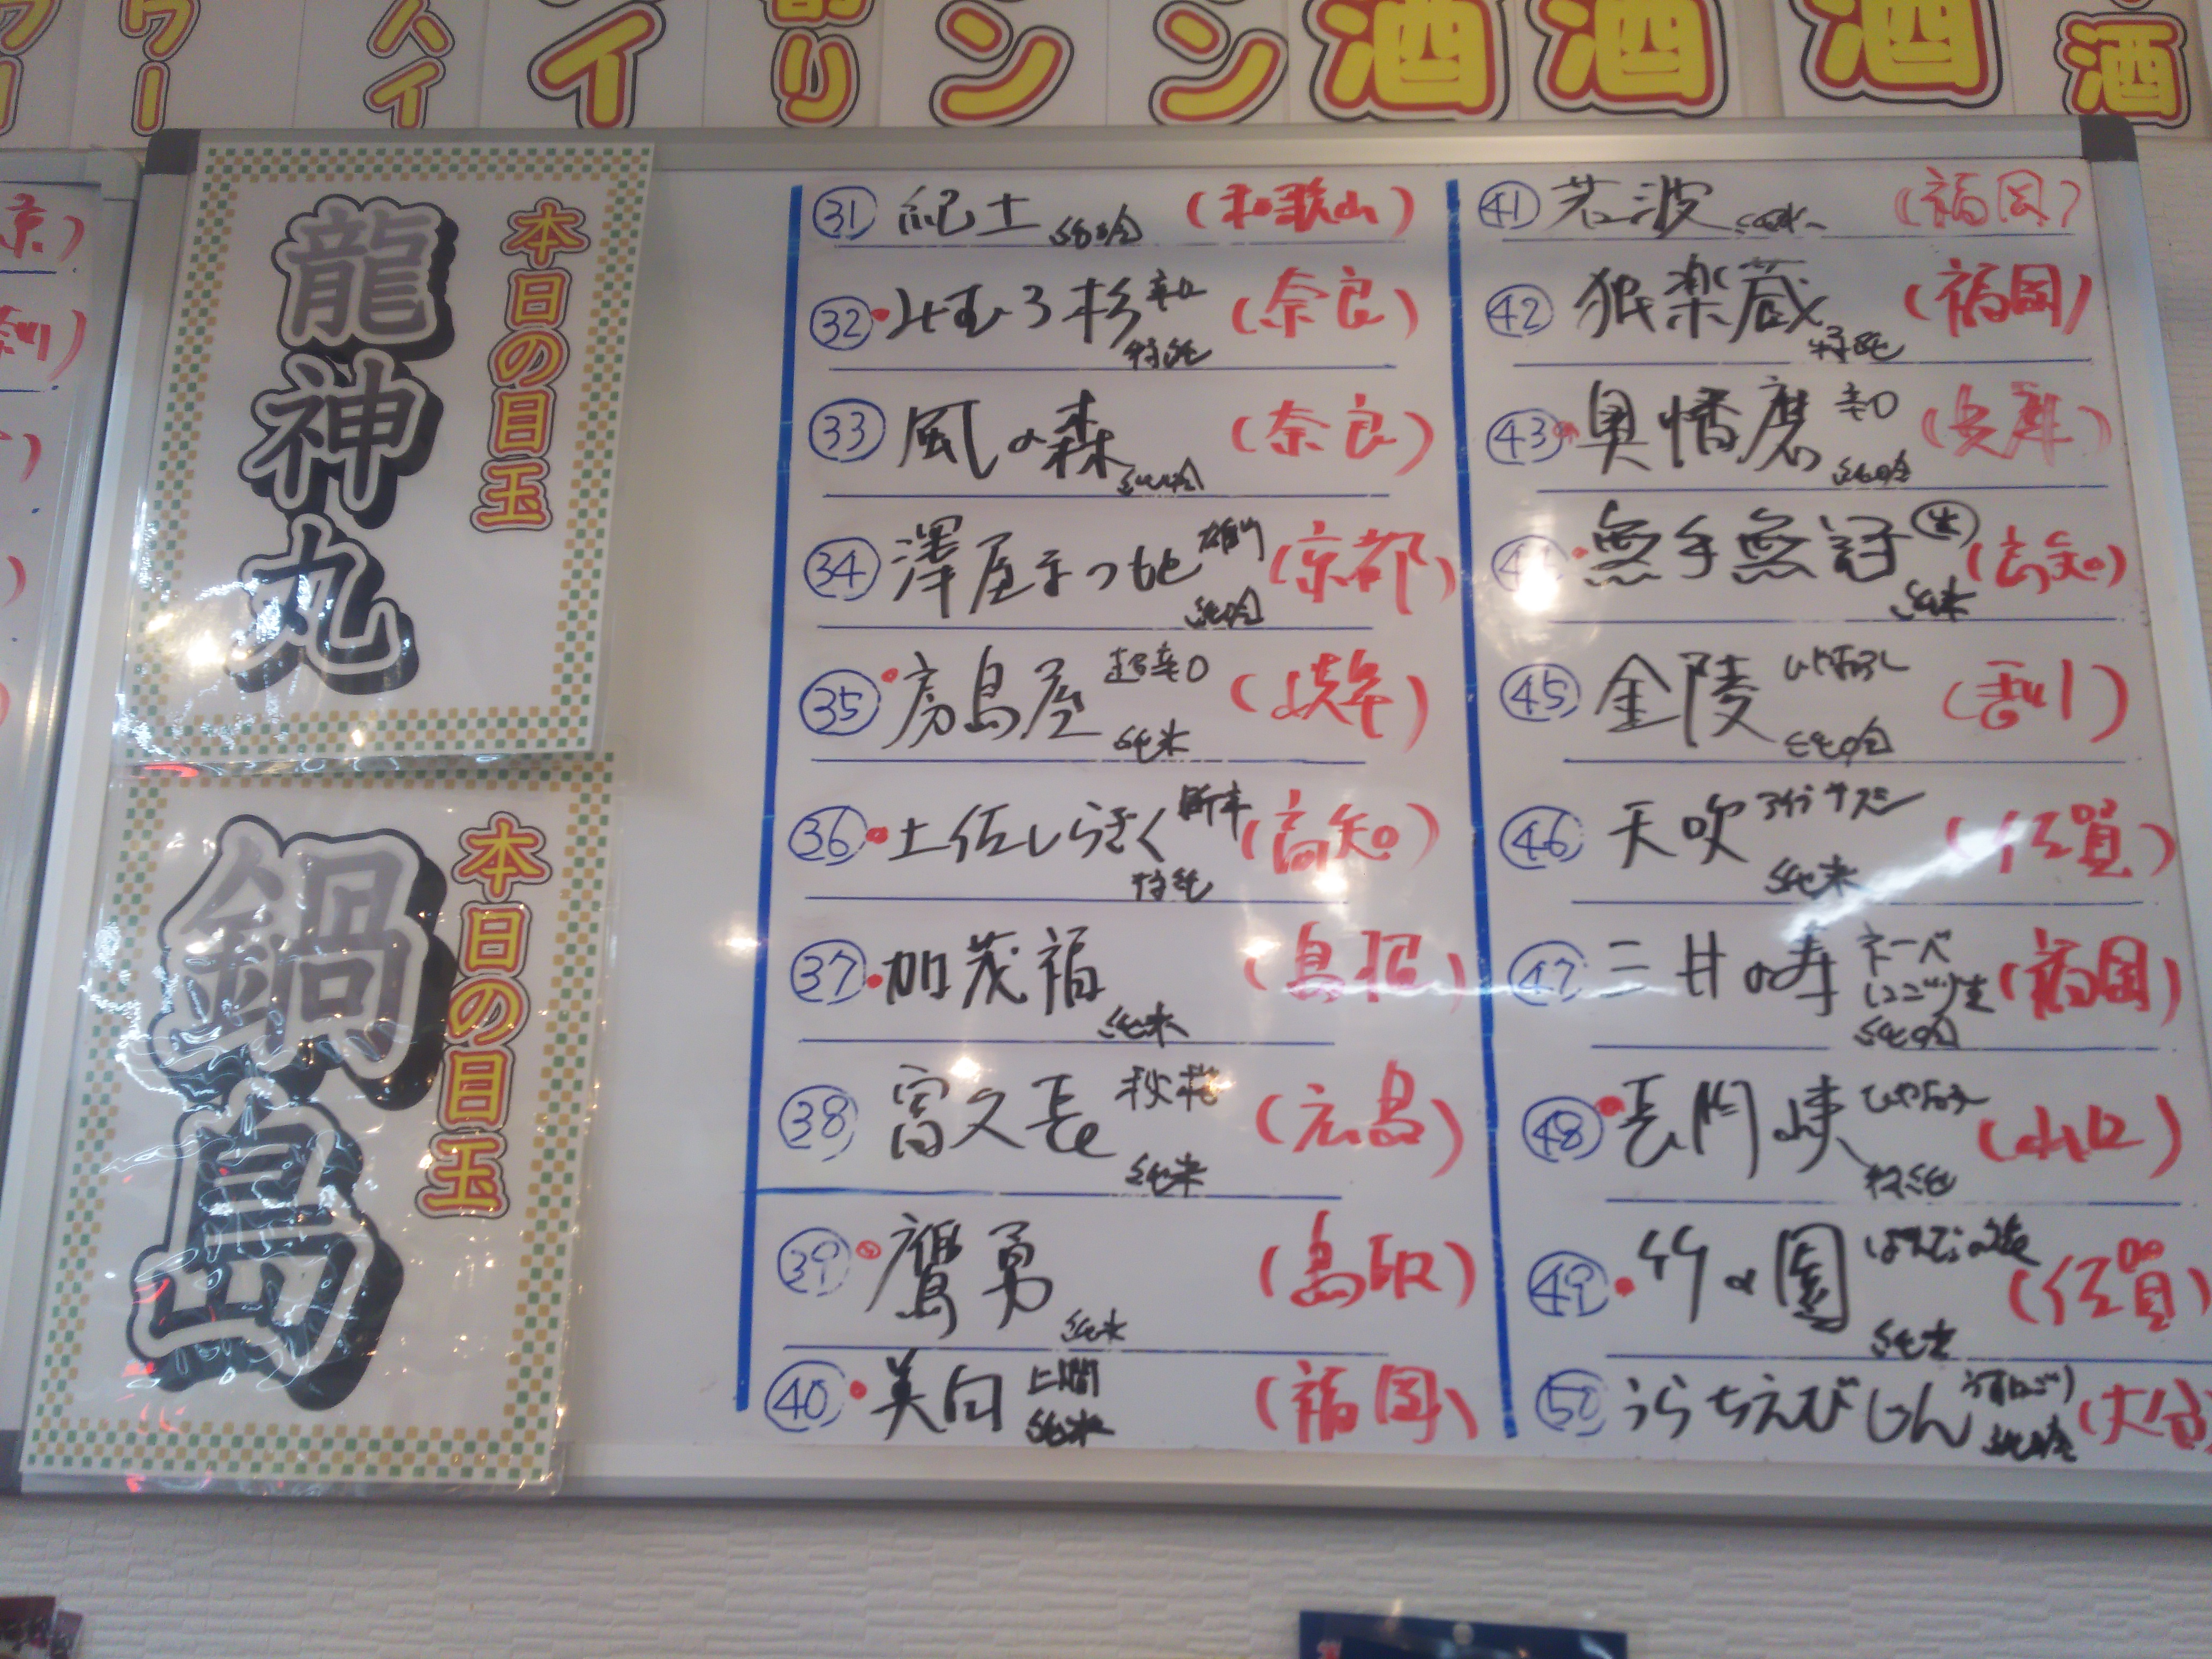 酒
酒
酒
酒
本日の目玉
龍神丸
本日の目玉
鍋島
㉛ 紀土 純吟 (和歌山)
㉜ みむろ杉 辛口 特純 (奈良)
㉝ 風の森 純吟 (奈良)
㉞ 澤屋まつもと 純吟 (京都)
㉟ 房島屋 超辛口 純米 (岐阜)
㊱ 土佐しらぎく 特純 (高知)
㊲ 加茂福 純米 (島根)
㊳ 富久長 秋桜 純米 (広島)
㊴ 鷹勇 純米 (鳥取)
㊵ 美田 山廃 純米 (福岡)
㊶ 若波 純米 (福岡)
㊷ 独楽蔵 特純 (福岡)
㊸ 奥播磨 辛口 純吟 (兵庫)
㊹ 無手無冠 生 純米 (高知)
㊺ 金陵 ひやおろし 純吟 (香川)
㊻ 天吹 純米 (佐賀)
㊼ 三井の寿 ネーベ にごり生 純吟 (福岡)
㊽ 長門峡 ひやおろし 特純 (山口)
㊾ 竹の園 純米 (佐賀)
㊿ うらちえびじん うすにごり 純吟 (大分